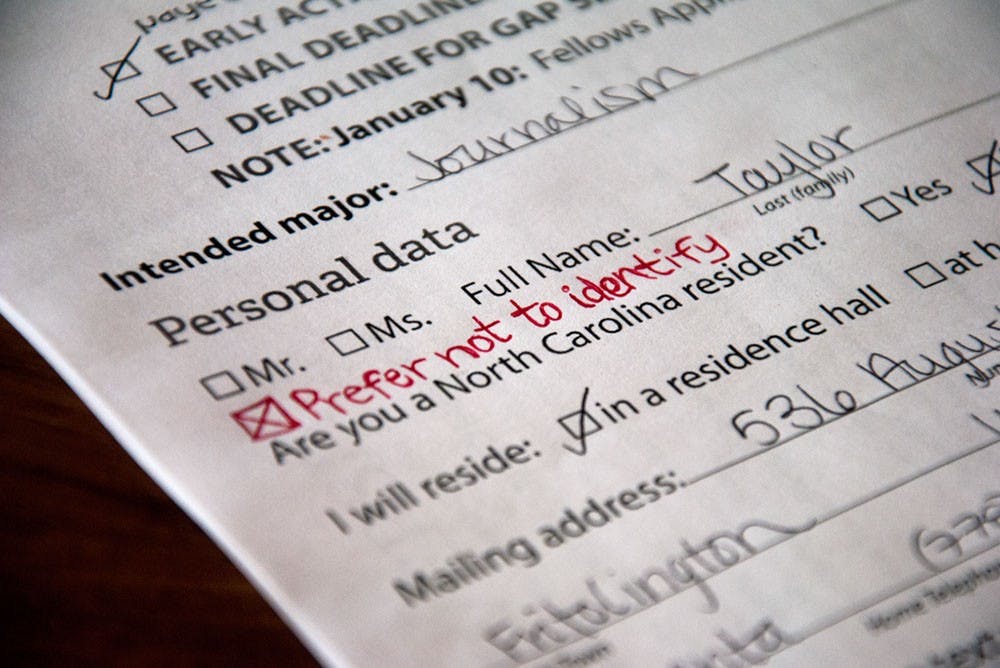 EARLY ACT
FINAL DEADLINE
DEADLINE FOR GAP
NOTE: January 10: Fellows Appl
Intended major: Journalism
Personal data
Full Name: Taylor
Last (family)
Mr. Ms.
Prefer not to identify
Are you a North Carolina resident? Yes
I will reside: in a residence hall at h
Mailing address: 536 Augu
Home Teleph